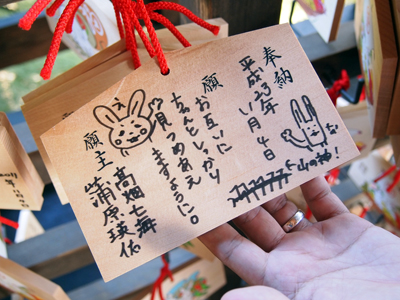 奉納
平成23年
11月4日
山の神!
願
お互いに
ちゃんとしっかり
見つめあえ
ますように。
願主
高畑七
蒲原瑛佑